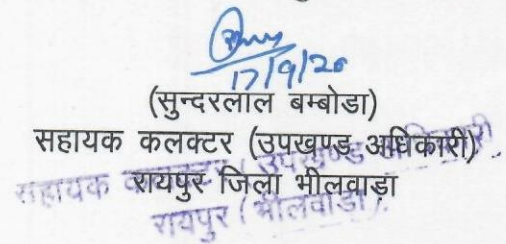 17/9/20
(सुन्दरलाल बम्बोडा)
सहायक कलक्टर (उपखण्ड अधिकारी)
रायपुर जिला भीलवाड़ा
सहायक कलक्टर (उपखण्ड अधिकारी)
रायपुर (भीलवाडा).